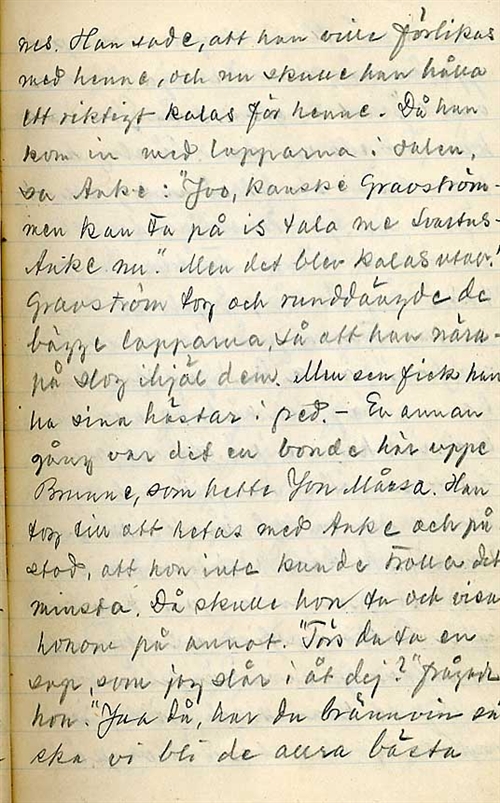 nes. Han sade, att han ville förlikas
med henne, och nu skulle han hålla
ett riktigt kalas för henne. Då han
kom in med lapparna i salen,
sa Anke: "Joo, kanske Gravström-
men kan ta på is tala me Svartnes-
Anke nu." Men det blev kalas utav!
Gravström tog och runddängde de
bägge lapparna, så att han nära-
på slog ihjäl dem. Men sen fick han
ha sina hästar i fred. – En annan
gång var det en bonde här uppe
Brunne, som hette Jon Mårsa. Han
tog till att retas med Anke och på
stod, att hon inte kunde trolla det
minsta. Då skulle hon ta och visa
honom på annat. "Törs du ta en
sup, som jag slår i åt dej?" frågade
hon. "Jaa då, har du brännvin så
ska vi bli de allra bästa